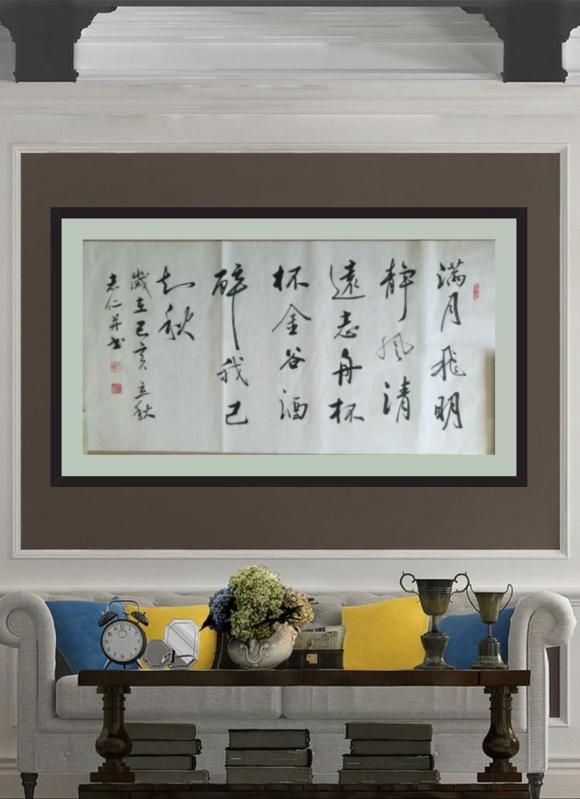 满月飛明
静风清
遠志舟杯
杯金谷酒
醉我已
知秋
歲在己亥立秋
志仁并书